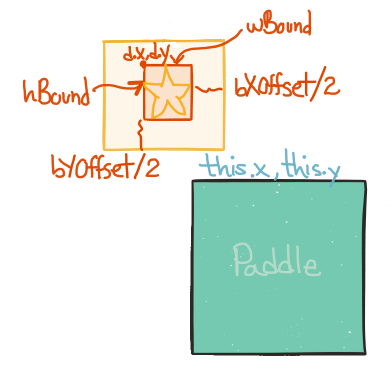 wBound
d.x,d.y
hBound
bXOffset/2
bYOffset/2
this.x, this.y
Paddle